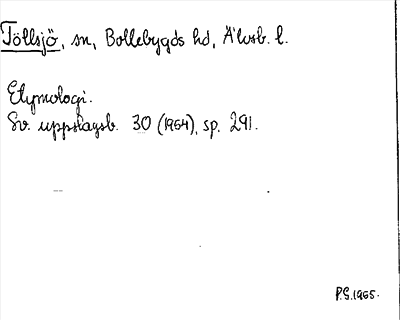 Töllsjö, sn, Bollebygds hd, Älvsb. l.
Etymologi.
Sv. uppslagsb. 30 (1954), sp. 291.
P.G. 1965.